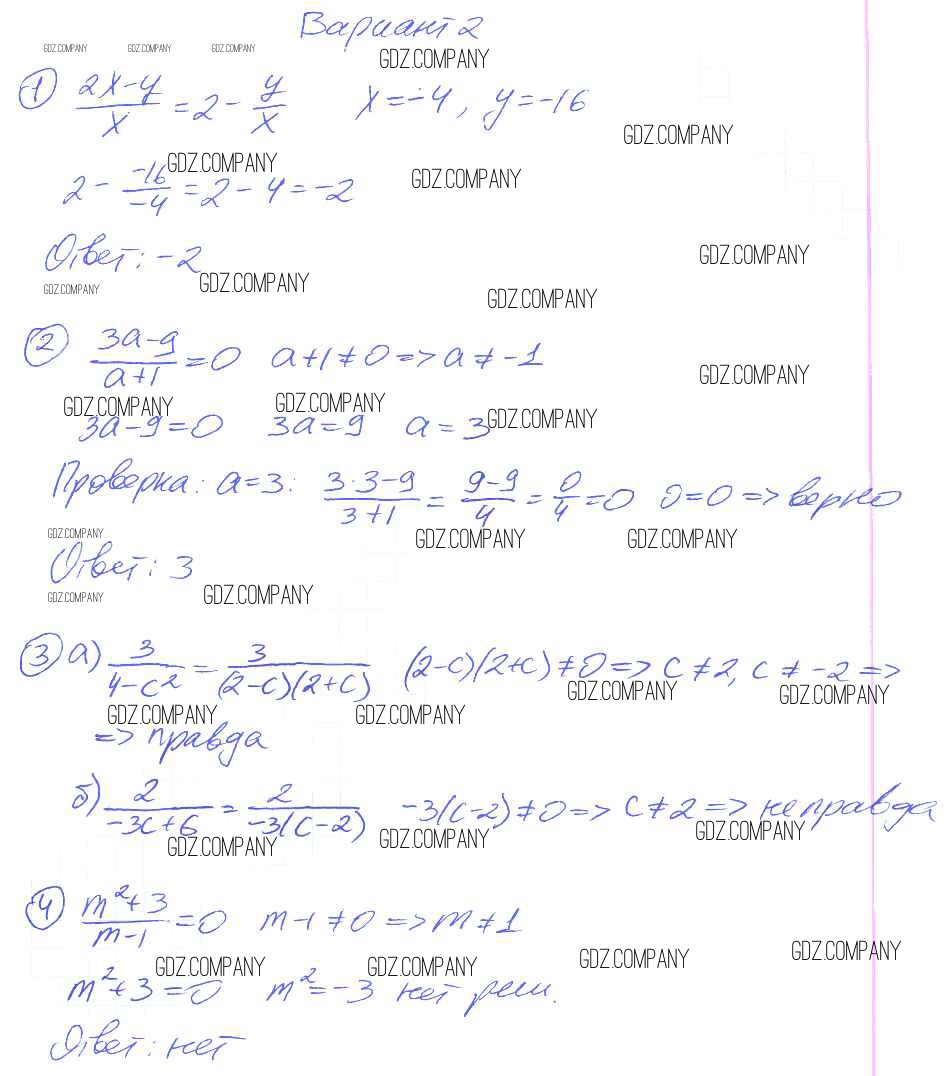 Вариант 2
GDZ.COMPANY GDZ.COMPANY GDZ.COMPANY GDZ.COMPANY
① (2x-y)/x = 2 - y/x x = -4, y = -16
GDZ.COMPANY
GDZ.COMPANY GDZ.COMPANY
2 - -16/-4 = 2 - 4 = -2
Ответ: -2
GDZ.COMPANY
GDZ.COMPANY GDZ.COMPANY GDZ.COMPANY
② (3a-9)/(a+1) = 0 a+1 ≠ 0 => a ≠ -1
GDZ.COMPANY
GDZ.COMPANY GDZ.COMPANY GDZ.COMPANY
3a-9=0 3a=9 a=3
Проверка: a=3: (3·3-9)/(3+1) = (9-9)/4 = 0/4 = 0 0=0 => верно
GDZ.COMPANY GDZ.COMPANY GDZ.COMPANY
Ответ: 3
GDZ.COMPANY GDZ.COMPANY
③ а) 3/(4-c²) = 3/((2-c)(2+c)) (2-c)(2+c) ≠ 0 => c ≠ 2, c ≠ -2 =>
GDZ.COMPANY GDZ.COMPANY
GDZ.COMPANY GDZ.COMPANY
=> правда
б) 2/(-3c+6) = 2/(-3(c-2)) -3(c-2) ≠ 0 => c ≠ 2 => неправда
GDZ.COMPANY GDZ.COMPANY GDZ.COMPANY
④ (m²+3)/(m-1) = 0 m-1 ≠ 0 => m ≠ 1
GDZ.COMPANY GDZ.COMPANY GDZ.COMPANY GDZ.COMPANY
m²+3=0 m²=-3 нет реш.
Ответ: нет